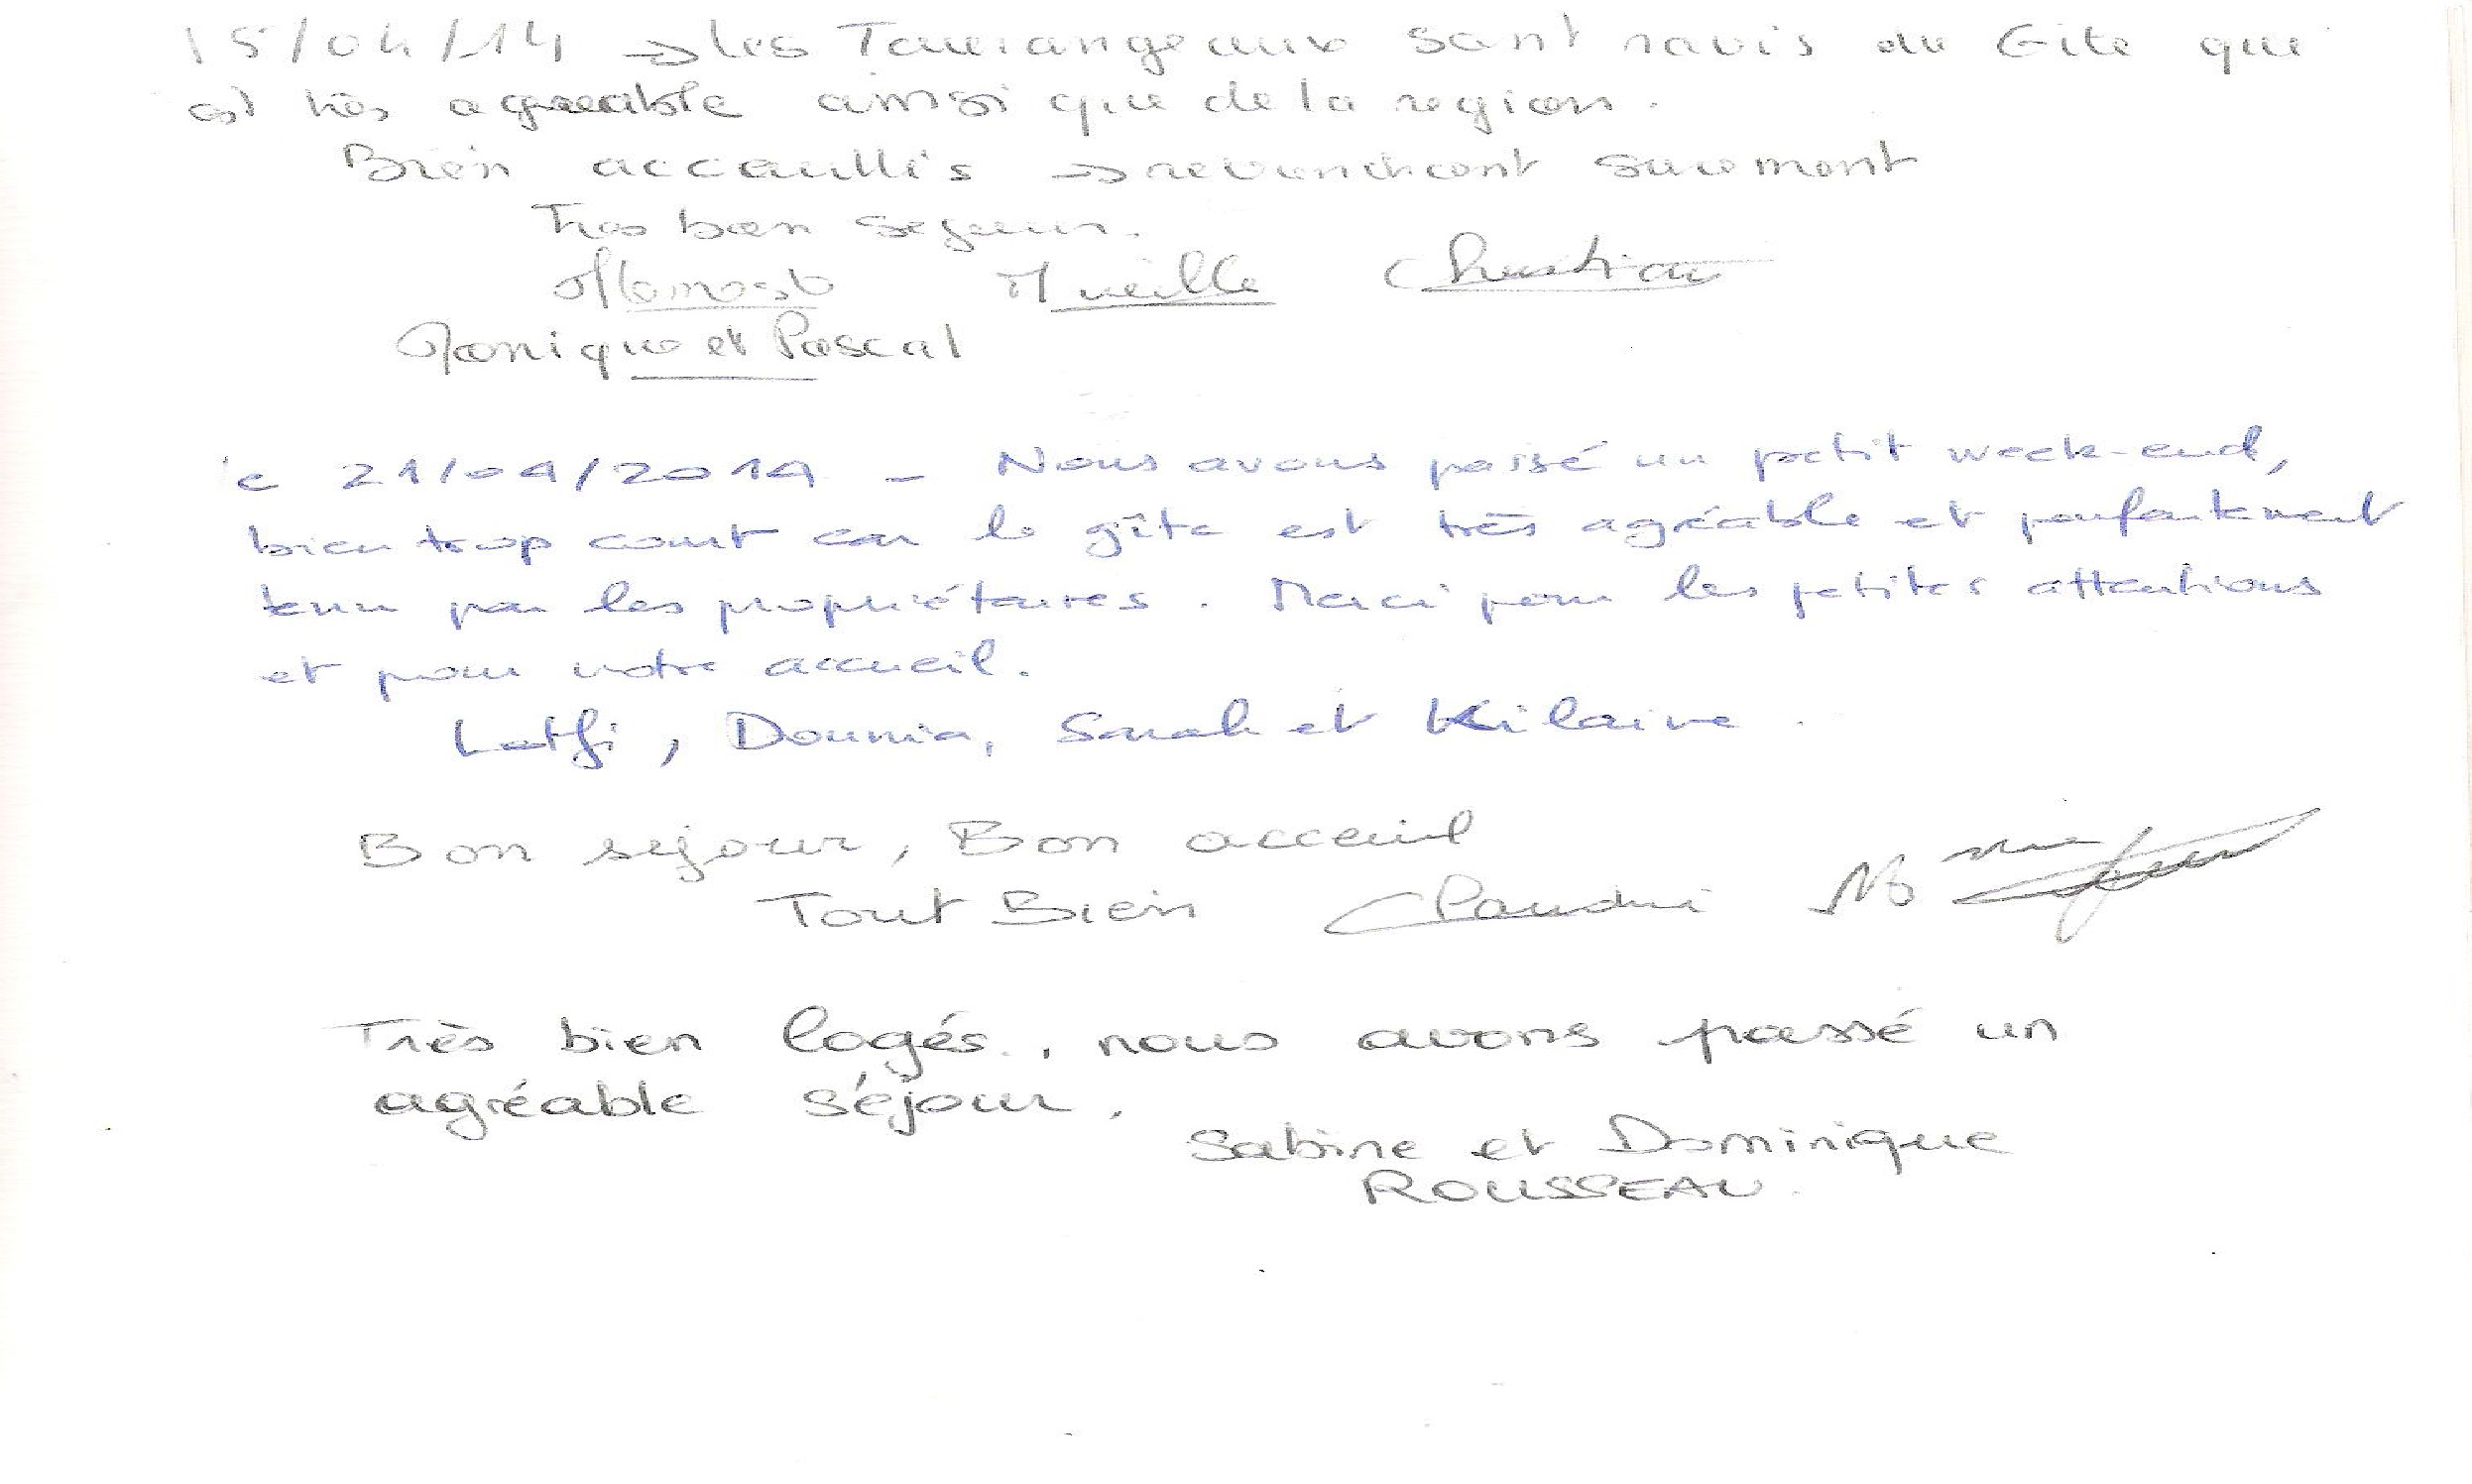 15/04/14 → les Tourangeaux sont ravis du Gite qui
est très agreable ainsi que de la region.
Bien accauillis → reviendront surement
Tres bon sejour.
Mireille Christian
Monique et Pascal
le 21/04/2014 - Nous avons passé un petit week-end,
bien trop court car le gîte est très agréable et parfaitement
tenu par les propriétaires. Merci pour les petites attentions
et pour votre accueil.
Lotfi, Dounia, Sarah et Kilaine.
Bon sejour, Bon acceuil
Tout Bien Claudni
Très bien logés, nous avons passé un
agréable séjour.
Sabine et Dominique
ROUSSEAU.